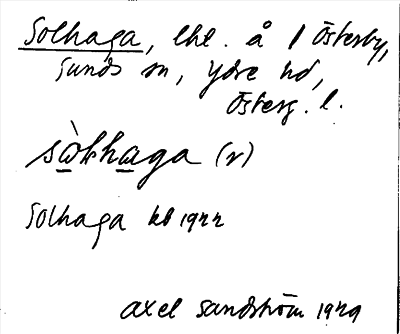 Solhaga, lht. å 1 Österby,
Sunds sn, Ydre hd,
Österg. l.
sòlhaga (r)
Solhaga kb 1922
Axel Sandström 1929